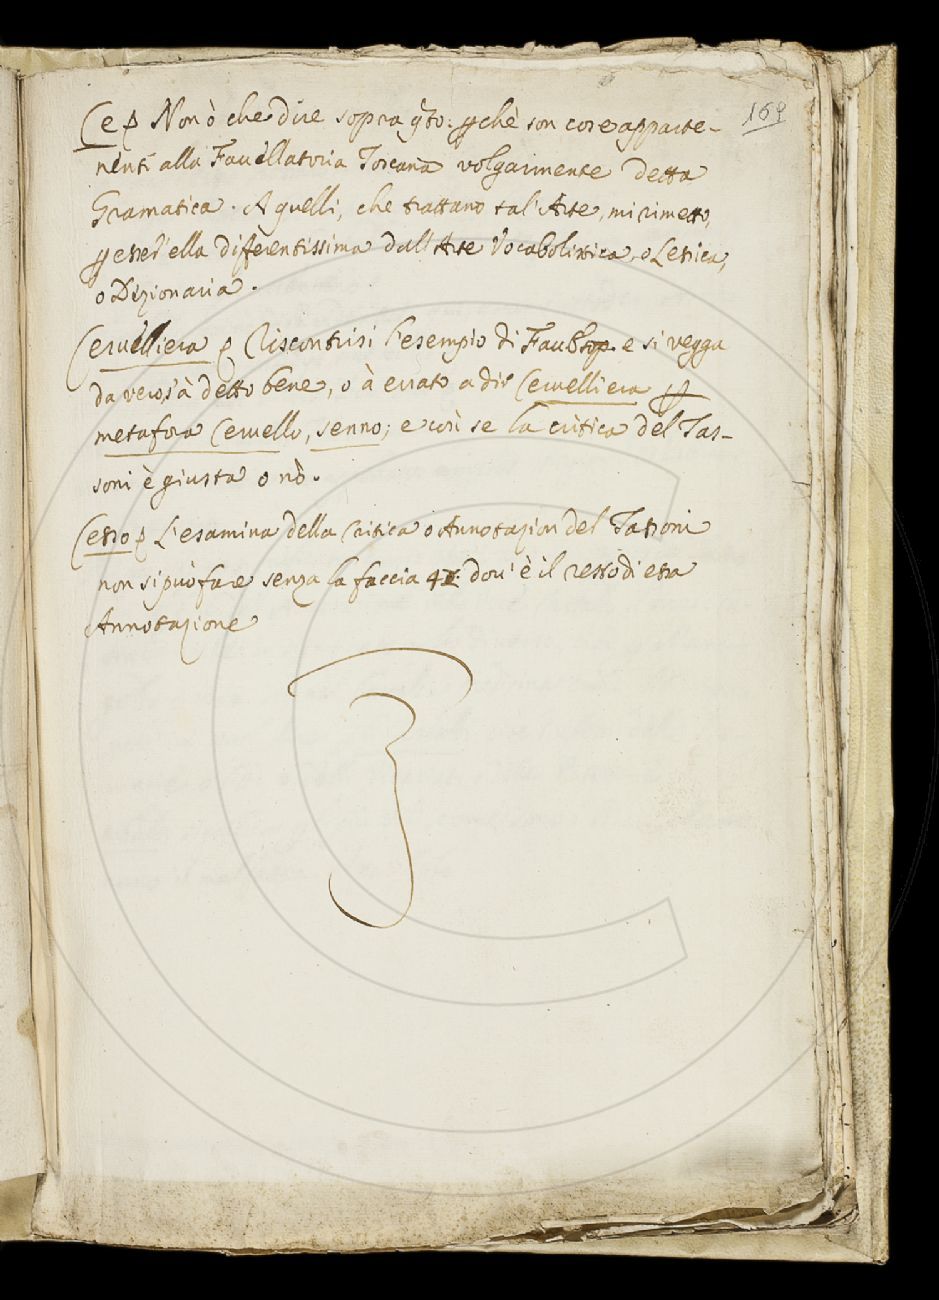 169
Ce Non ò che dire sopra q̃to. ꝑchè son cose apparte-
nenti alla Favellatoria Toscana volgarmente detta
Gramatica. A quelli, che trattano tal'Arte, mi rimetto,
ꝑ esser'ella differentissima dall'Arte Vocabolistica, o Lessica,
o Dizionaria.
Cervelliera Riscontrisi l'esempio di e si vegga
da vero s'à detto bene, o à errato a dir Cervelliera ꝑ
metafora Cervello, senno; e così se la critica del Tas-
soni è giusta o nò.
Cesso L'esamina della Critica o Annotazion del Tassoni
non si può fare senza la faccia dov'è il resto di essa
Annotazione